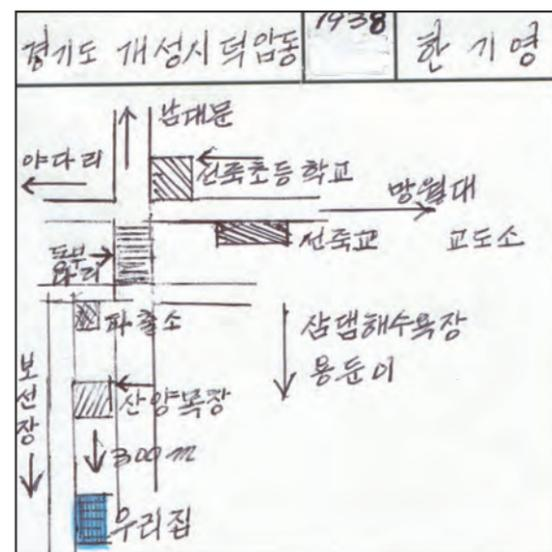 경기도 개성시 덕암동
1938
한기영
남대문
야다리
선죽초등학교
망월대
선죽교
교도소
동부
다리
파출소
삼댐해수욕장
용둔이
보선장
산양목장
300m
우리집